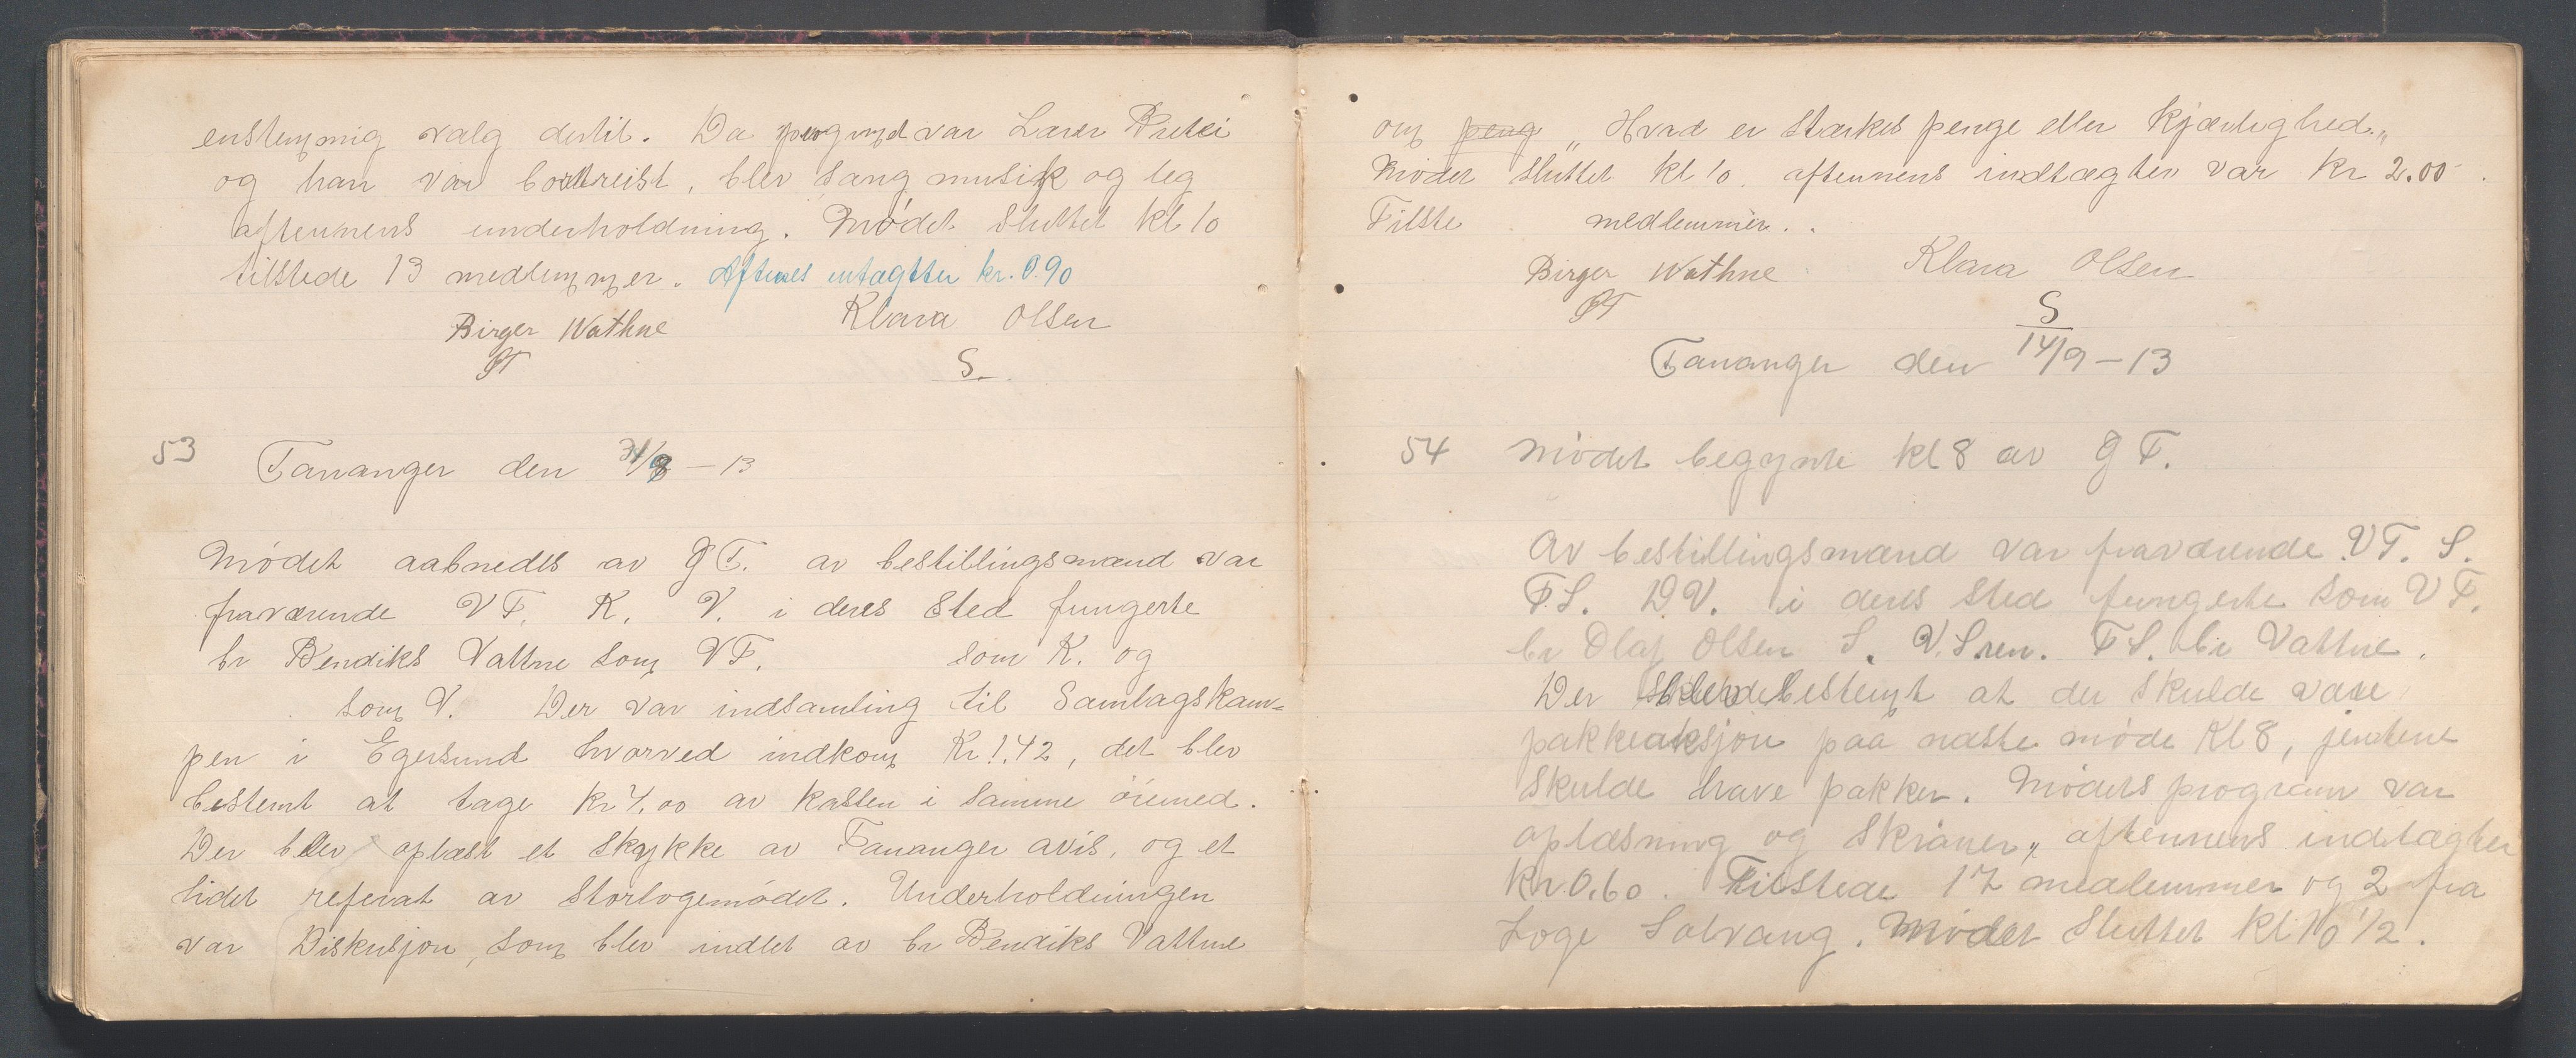 enstemmig valg dertil. Da progmd var Laver
og han var bortreist, blev sang musik og leg
aftennens underholdning. Mødet sluttet kl 10
tilstede 13 medlemmer. Aftenes intægtter kr. 0.90
Birger Wathne Klara Olsen
GT S.
53 Tananger den 31/8 – 13
Mødet aabnedes av G T. av bestillingsmænd var
fraværende V T. K. V. i deres sted fungerte
br Bendiks Vattne som VT. som K. og
som V. Der var indsamling til Samlagskam-
pen i Egersund hvorved indkom Kr 1.42, det blev
bestemt at tage kr 4.00 av kassen i samme öiemed.
Der blev oplæst et skykke av Tananger avis, og et
lidet referat av Storlogemødet. Underholdningen
var Diskusjon, som blev indlet av br Bendiks Vattne
om peng „Hvad er stærkes penge eller kjærlighed„
Mødet sluttet kl 10. aftennens indtægter var kr 2.00.
Tilste medlemmer..
Birger Wathne Klara Olsen
GT S
Tananger den 14/9 – 13
54 Mödet begynte kl 8 av G T.
Av bestillingsmænd var fraværende V T. S.
T.S. D.V. i deres sted fungerte som V T.
br Olaf Olsen S. V. Sren. T S. br Vattne.
Der blev bestemt at der skulde være
pakkeauksjon paa næste møde Kl 8, jentene
skulde have pakker. Mødets program var
oplæsning og skrøner„ aftennens indtægter
kr 0.60. Tilstede 17 medlemmer og 2 fra
Loge Solvang. Mødet sluttet Kl 10 1/2.